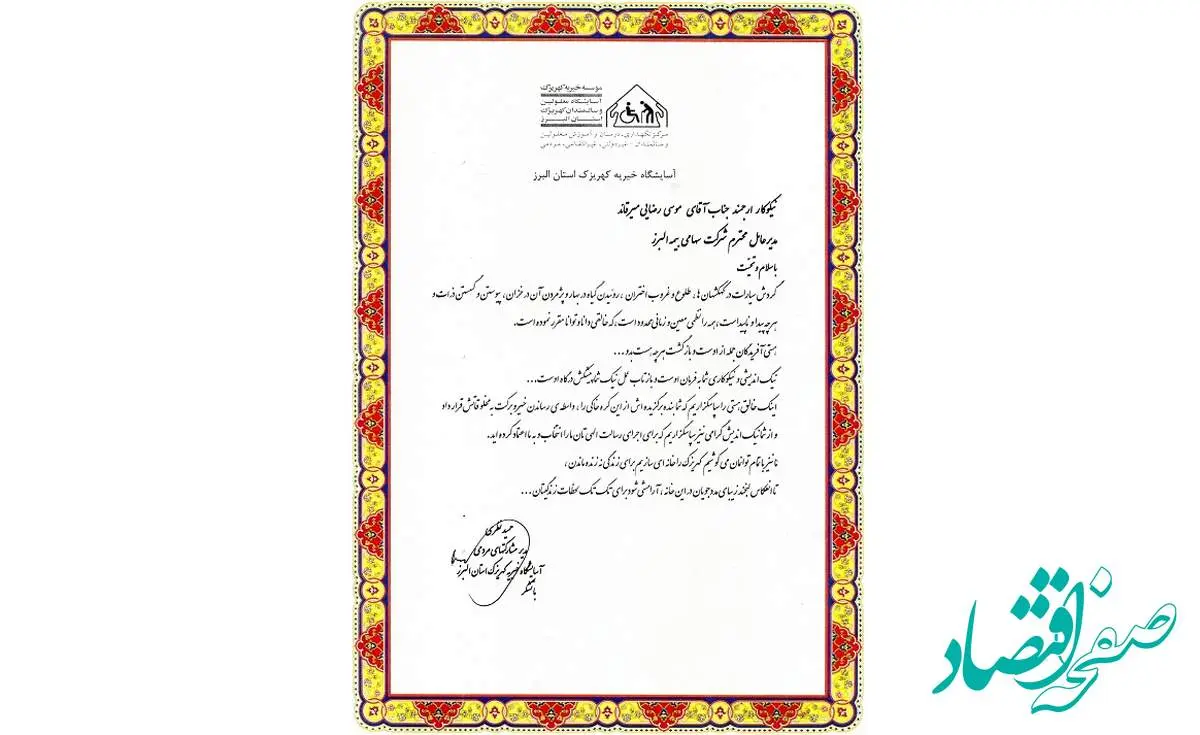 موسسه خیریه کهریزک
آسایشگاه معلولین
و سالمندان کهریزک
استان البرز
مرکز نگهداری، درمان و آموزش معلولین
و سالمندان - غیردولتی، غیرانتفاعی، مردمی
آسایشگاه خیریه کهریزک استان البرز
نیکوکار ارجمند جناب آقای موسی رضایی میرقائد
مدیرعامل محترم شرکت سهامی بیمه البرز
باسلام و تحیت
گردش سیارات در کهکشان ها، طلوع و غروب اختران، روئیدن گیاه در بهار و پژمردن آن در خزان، پیوستن و گسستن ذرات و
هر چه پیدا و ناپیداست، همه را نظمی معین و زمانی محدود است، که خالقی دانا و توانا مقرر نموده است.
هستی آفریدگان جمله از اوست و بازگشت هر چه هست بدو...
نیک اندیشی و نیکوکاری شما به فرمان اوست و بازتاب عمل نیک شما پیشکش درگاه اوست...
اینک خالق هستی را سپاسگزاریم که شما بنده برگزیده اش از این کره خاکی را، واسطه ی رساندن خیر و برکت به مخلوقاتش قرار داد
و از شما نیک اندیش گرامی نیز سپاسگزاریم که برای اجرای رسالت الهی تان ما را انتخاب و به ما اعتماد کرده اید.
ما نیز با تمام توانمان می کوشیم کهریزک را خانه ای سازیم برای زندگی نه زنده ماندن،
تا انعکاس لبخند زیبای مددجویان در این خانه، آرامشی شود برای تک تک لحظات زندگیتان...
حمید تفکری
مدیر مشارکتهای مردمی
آسایشگاه خیریه کهریزک استان البرز
باتشکر
صفحه اقتصاد